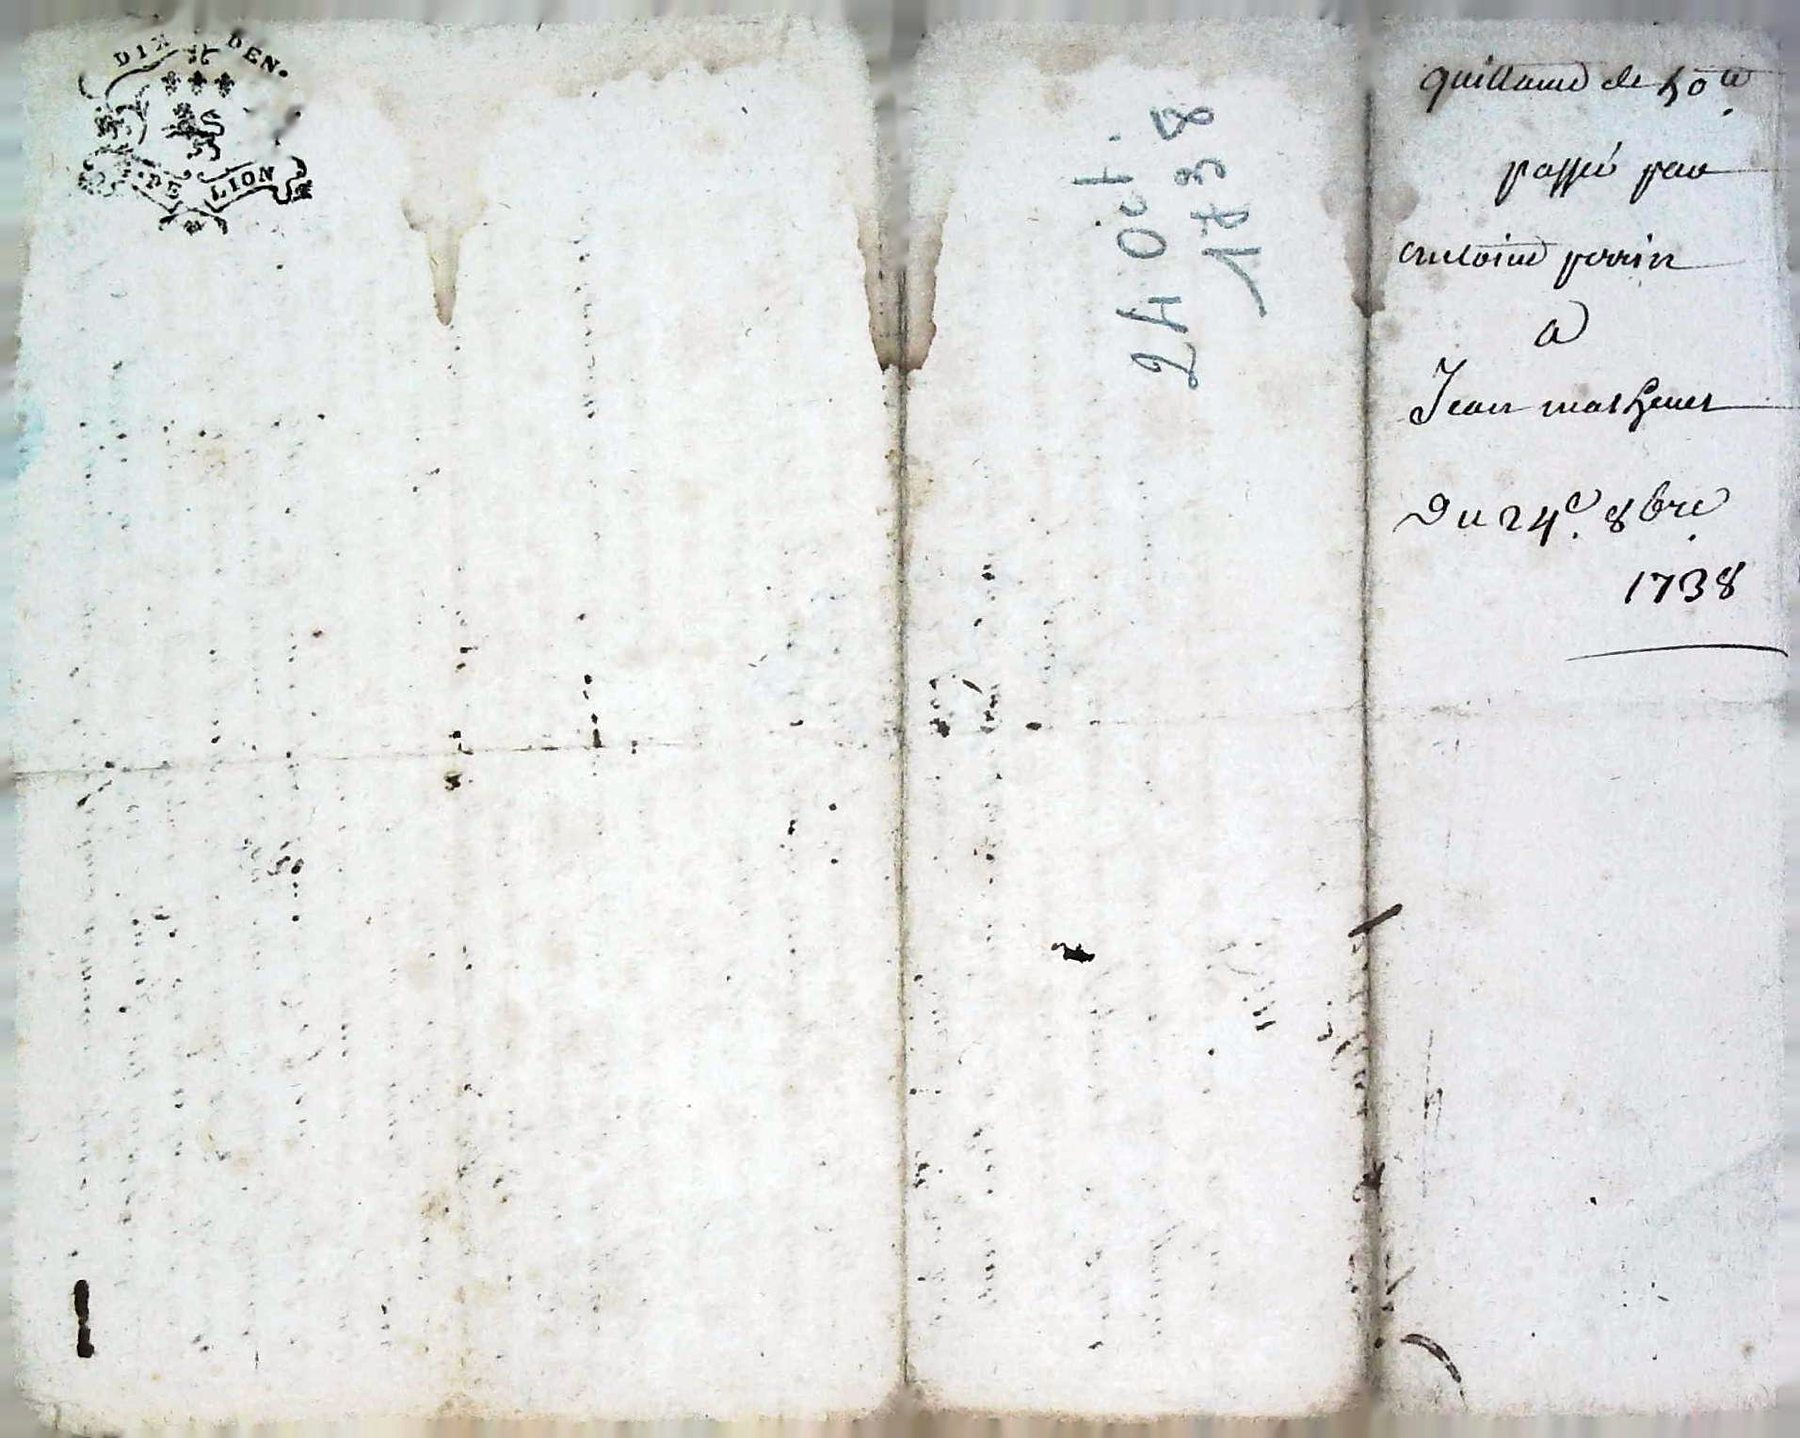 DIX DEN.
DE LION
24 Oct.
1738
quittance de 50 ₶
passée par
antoine perrin
a
Jean matheuet
Du 24e. 8bre
1738